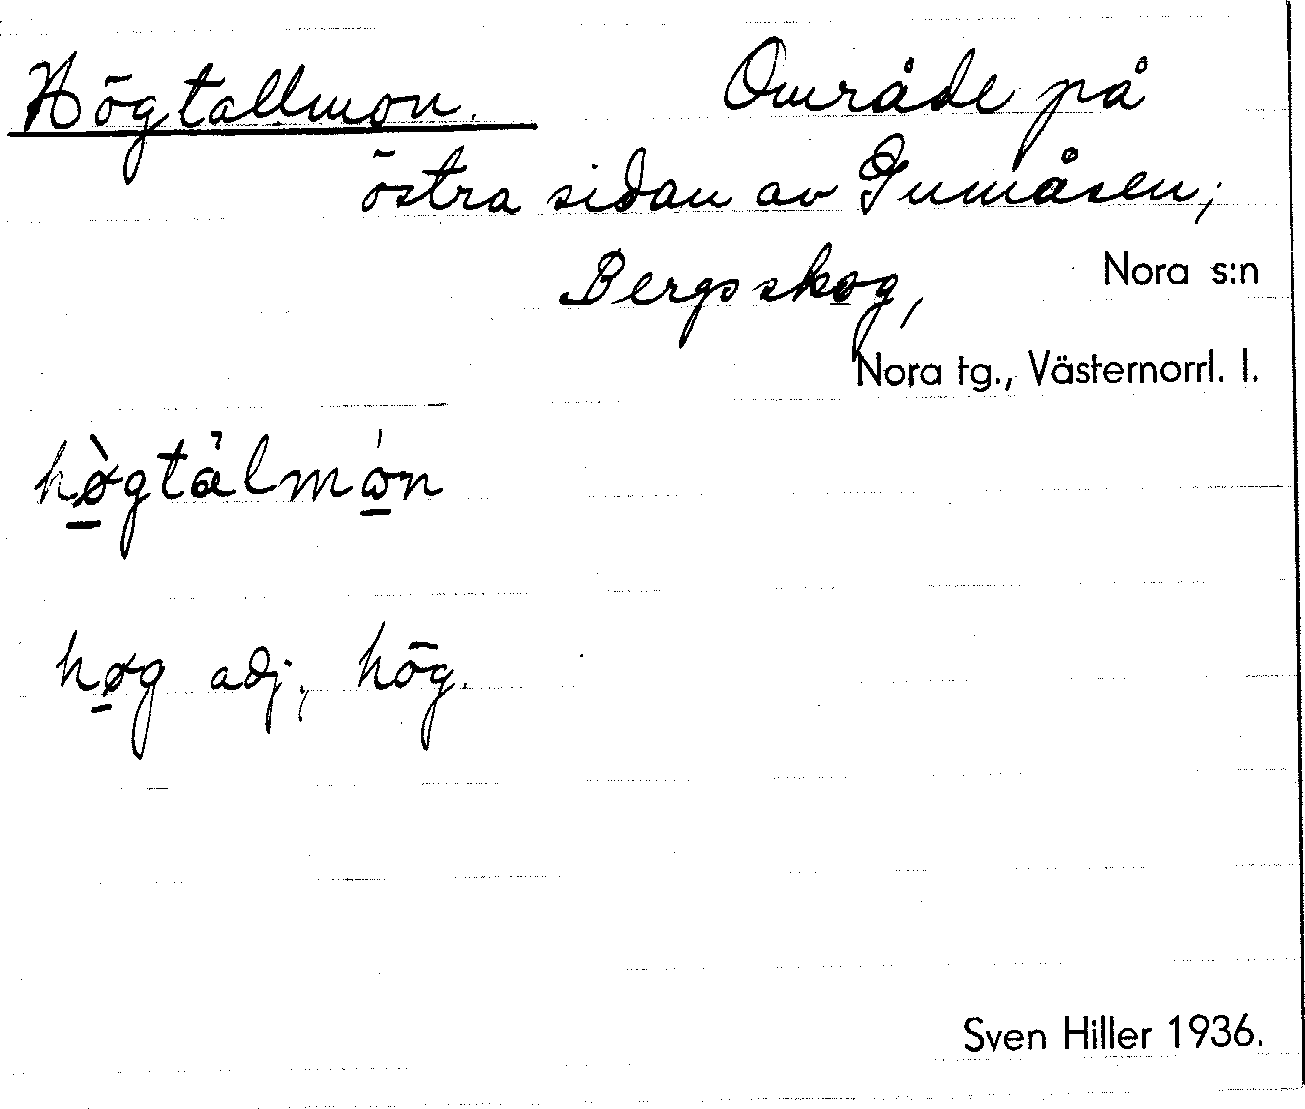 Högtallmon. Område på
östra sidan av Gumåsen,
Bergsskog, Nora s:n
Nora tg., Västernorrl. l.
hø̀gtålmón
høg adj., hög.
Sven Hiller 1936.